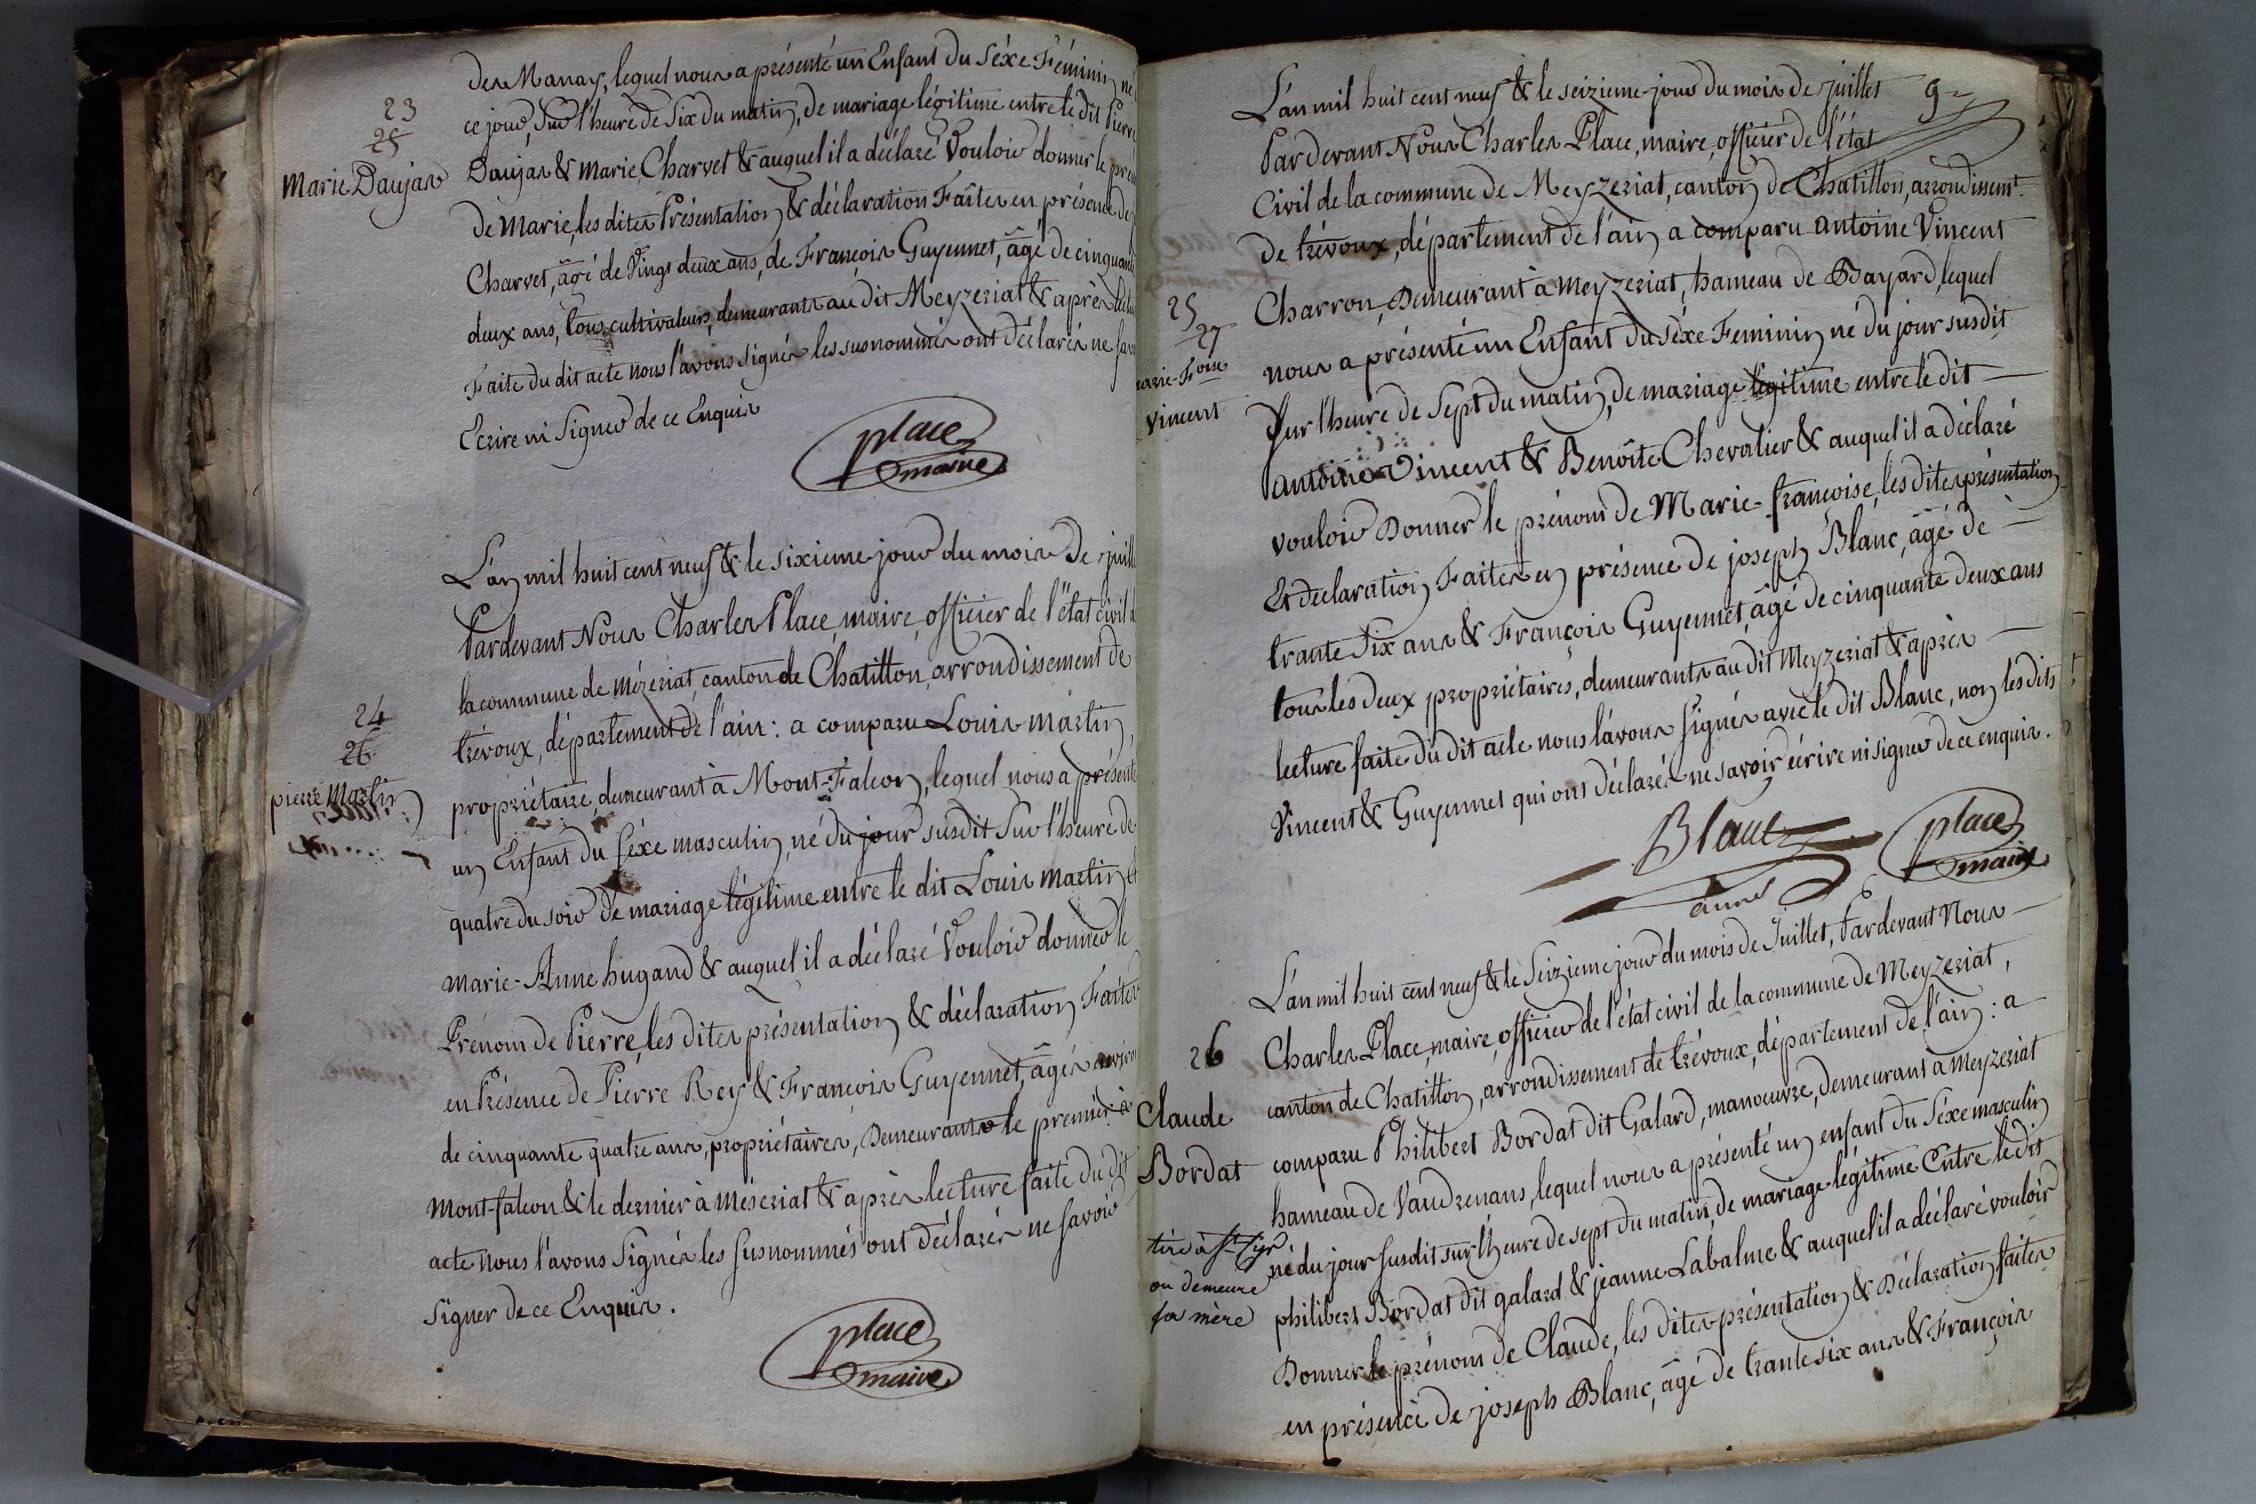 23
25
Marie Daujas
des Manay, lequel nous a présenté un Enfant du Séxe Féminin né
ce jour, Sur l'heure de Six du matin, de mariage légitime entre le dit Pierre
Daujas & Marie Charvet & auquel il a déclaré Vouloir donner le
de Marie, les dites Présentation & déclaration Faites en présence de
Charvet, âgé de Vingt deux ans, de François Guyennet, âgé de cinquante
deux ans, tous cultivateurs, demeurants au dit Meyzeriat & après
Faite du dit acte nous l'avons Signés les susnommés ont déclarés ne
Ecrire ni Signer de ce Enquis
place
maire
L'an mil huit cent neuf & le sixieme jour du mois de
Pardevant Nous Charles Place, maire, officier de l'état civil
la commune de mézériat, canton de Chatillon, arrondissement de
trévoux, département de l'ain : a comparu Louis martin,
24
26
pierre Martin
propriétaire, demeurant à Mont-Falcon, lequel nous a présenté
un Enfant du séxe masculin, né du jour susdit Sur l'heure de
quatre du soir de mariage légitime entre le dit Louis martin &
marie-Anne hugand & auquel il a déclaré Vouloir donner le
Prénom de Pierre, les dites présentation & déclaration Faites
en Présence de Pierre Rey & François Guyennet, âgés
de cinquante quatre ans, propriétaires, Demeurants le premier à
mont-falcon & le dernier à mézeriat & après lecture faite du dit
acte nous l'avons Signés les susnommés ont déclarés ne savoir
signer de ce Enquis.
place
maire
9
L'an mil huit cent neuf & le seizieme jour du mois de juillet
Pardevant Nous Charles Place, maire, officier de l'état
Civil de la commune de Meyzeriat, canton de Chatillon, arrondissemt.
de trévoux, département de l'ain a comparu antoine Vincent
Charron, Demeurant à meyzeriat, hameau de Bayard, lequel
25
27
marie-Foise
Vincent
nous a présenté un Enfant du Séxe Feminin né du jour susdit
Sur l'heure de Sept du matin, de mariage légitime entre le dit
antoine Vincent & Benoîte Chevalier & auquel il a déclaré
vouloir Donner le prénom de Marie-françoise, les dites présentation
Et declaration Faites en présence de joseph Blanc, âgé de
trante Six ans & François Guyennet, âgé de cinquante deux ans
tous les deux propriétaires, demeurants au dit Meyzeriat & après
lecture faite du dit acte nous l'avons Signés avec le dit Blanc, non les dits
Vincent & Guyennet qui ont déclarés ne savoir écrire ni signer de ce enquis.
Blanc
place
maire
L'an mil huit cent neuf & le Seizieme jour du mois de Juillet, Pardevant Nous
Charles Place, maire, officier de l'état civil de la commune de Meyzeriat,
canton de Chatillon, arrondissement de trévoux, département de l'ain : a
26
Claude
Bordat
comparu Philibert Bordat dit Galard, manoeuvre, demeurant à meyzeriat
hameau de Vaudrenans, lequel nous a présenté un enfant du Séxe masculin
né du jour susdit sur l'heure de sept du matin, de mariage légitime Entre le dit
tiré à St Cyr
ou demeure
sa mère
philibert Bordat dit galard & jeanne Labalme & auquel il a déclaré vouloir
Donner le prénom de Claude, les dites présentation & Déclaration faites
en présence de joseph Blanc, âgé de trante six ans & François